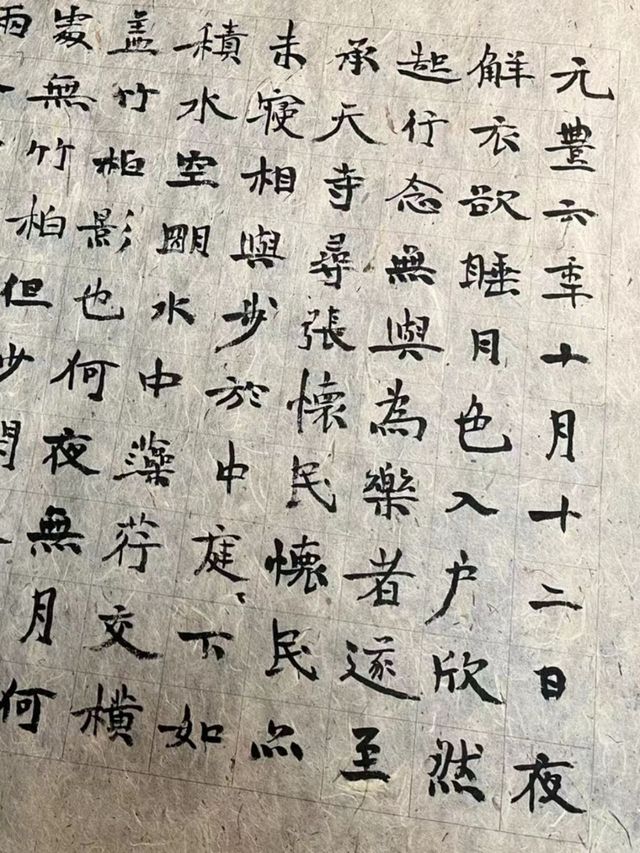 元豐六年十月十二日夜
解衣欲睡月色入户欣然
起行念無與為樂者遂至
承天寺尋張懷民懷民亦
未寝相與步於中庭〻下如
積水空明水中藻荇交橫
蓋竹柏影也何夜無月何
處無竹柏但少閑
兩